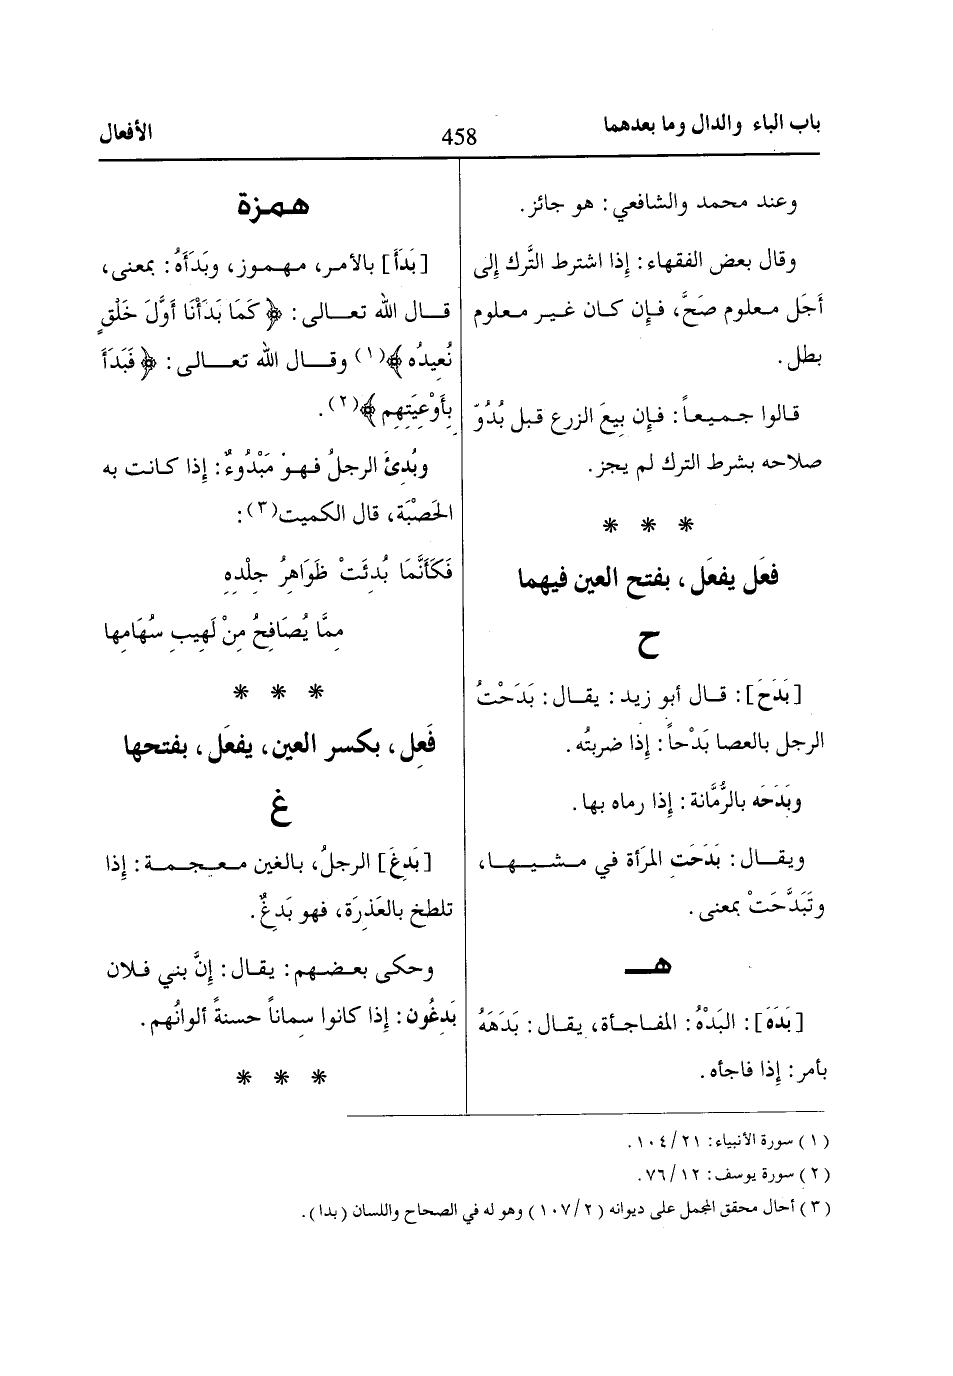 باب الباء والدال وما بعدهما
458
الأفعال
وعند محمد والشافعي: هو جائز.
وقال بعض الفقهاء: إذا اشترط التَّرك إلى
أجَل معلوم صَحَّ، فإن كان غير معلوم
بطل.
قالوا جميعاً: فإن بيعَ الزرع قبل بُدُوّ
صلاحه بشرط الترك لم يجز.
* * *
فعَل يفعَل، بفتح العين فيهما
ح
[بَدَحَ]: قال أبو زيد: يقال: بَدَحْتُ
الرجل بالعصا بَدْحاً: إذا ضربتُه.
وبَدَحَه بالرُّمَّانة: إذا رماه بها.
ويقال: بَدَحَت المرأة في مشيها،
وتَبَدَّحَتْ بمعنى.
هـ
[بَدَهَ]: البَدْهُ: المفاجأة، يقال: بَدَهَهُ
بأمر: إذا فاجأه.
همزة
[بَدَأَ] بالأمر، مهموز، وبَدَأَهُ: بمعنى،
قال الله تعالى: ﴿كَمَا بَدَأْنَا أَوَّلَ خَلْقٍ
نُعِيدُه﴾(١) وقال الله تعالى: ﴿فَبَدَأَ
بِأَوْعِيَتِهِم﴾(٢).
وبُدِئَ الرجلُ فهوْ مَبْدُوءٌ: إذا كانت به
الحَصْبَة، قال الكميت(٣):
فَكَأَنَّمَا بُدِئَتْ ظَوَاهِرُ جِلْدِهِ
مِمَّا يُصَافِحُ مِنْ لَهِيبِ سُهَامِها
* * *
فَعِل، بكسر العين، يفعَل، بفتحها
غ
[بَدِغَ] الرجلُ، بالغين معجمة: إذا
تلطخ بالعَذِرَة، فهو بَدِغٌ.
وحكى بعضهم: يقال: إنَّ بني فلان
بَدِغُون: إذا كانوا سماناً حسنةً ألوانُهم.
* * *
(١) سورة الأنبياء: ٢١/١٠٤.
(٢) سورة يوسف: ١٢/٧٦.
(٣) أحال محقق المجمل على ديوانه (٢/١٠٧) وهو له في الصحاح واللسان (بدا).